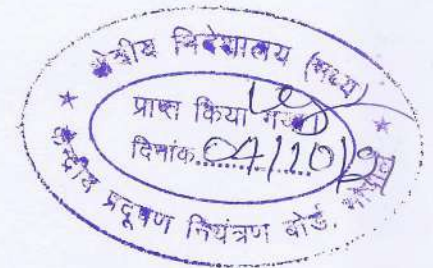 क्षेत्रीय निदेशालय (मध्य)
प्राप्त किया गया
दिनांक 04/10/
केन्द्रीय प्रदूषण नियंत्रण बोर्ड, भोपाल